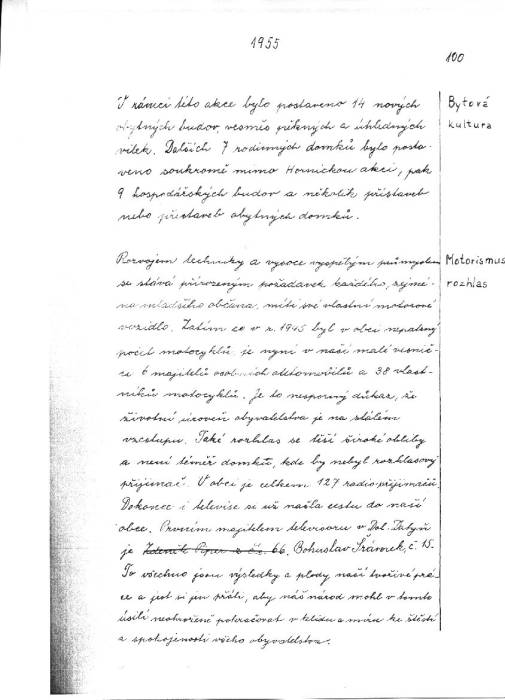 1955
100
V rámci této akce bylo postaveno 14 nových
obytných budov, vesměs pěkných a úhledných
vilek. Dalších 7 rodinných domků bylo posta-
veno soukromě mimo Hornickou akci, pak
9 hospodářských budov a několik přístaveb
nebo přestaveb obytných domků.
Bytová
kultura
Rozvojem techniky a vysoce vyspělým průmyslem
se stává přirozeným požadavek každého, zejmé-
na mladšího občana, míti své vlastní motorové
vozidlo. Zatím co v r. 1945 byl v obci nepatrný
počet motocyklů, je nyní v naší malé vesnič-
ce 6 majitelů osobních automobilů a 38 vlast-
níků motocyklů. Je to nesporný důkaz, že
životní úroveň obyvatelstva je na stálém
vzestupu. Také rozhlas se těší široké obliby
a není téměř domku, kde by nebyl rozhlasový
přijimač. V obci je celkem 127 radio-přijimačů.
Dokonce i televise si už našla cestu do naší
obce. Prvním majitelem televisoru v Dol. Datyň
je Zdeněk Piper z čs. 66. Bohuslav Šrámek, č. 15.
To všechno jsou výsledky a plody naší tvořivé prá-
ce a jest si jen přáti, aby náš národ mohl v tomto
úsilí neohroženě pokračovat v klidu a míru ke štěstí
a spokojenosti všeho obyvatelstva.
Motorismus
rozhlas